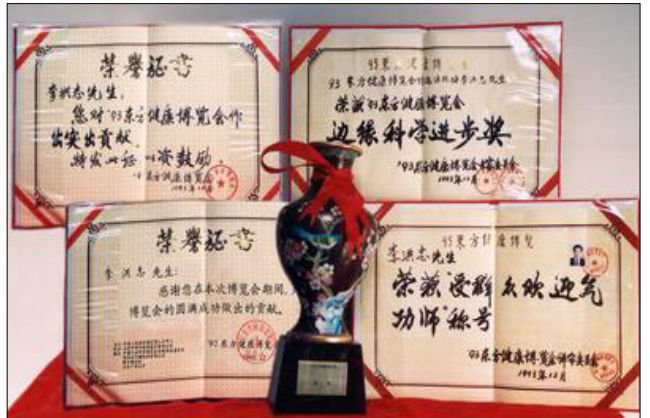 荣誉证书
李洪志先生:
您对'93东方健康博览会作
出突出贡献,
特发此证 以资鼓励。
'93东方健康博览会
1993年12月
93 东方健康博览会
荣获'93东方健康博览会
边缘科学进步奖
'93东方健康博览会
1993年12月
荣誉证书
李洪志 先生:
感谢您在本次博览会期间,
博览会的圆满成功做出的贡献。
'92东方健康博览会
93东方健康博览
李洪志先生
荣获"受群众欢迎气
功师"称号
'93东方健康博览会评审委员会
1993年12月